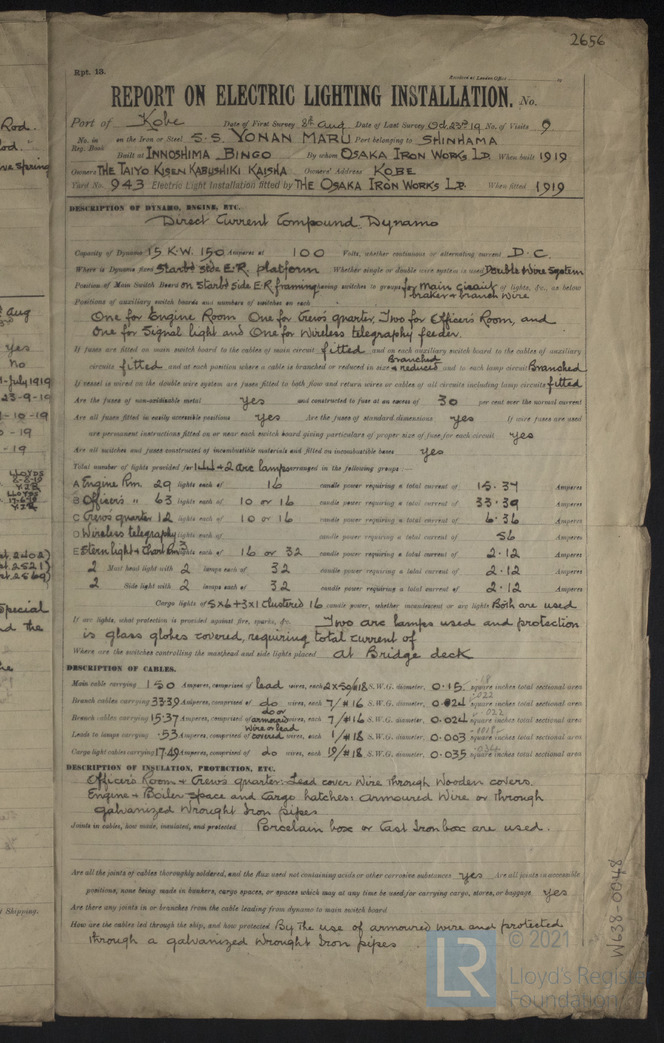 2656
Rpt. 13.
REPORT ON ELECTRIC LIGHTING INSTALLATION. No.
Port of Kobe Date of First Survey 8th Aug Date of Last Survey Oct. 23rd 19 No. of Visits 9
No. in Reg. Book on the Iron or Steel S.S. YONAN MARU Port belonging to SHINHAMA
Built at INNOSHIMA BINGO By whom OSAKA IRON WORKS LD When built 1919
Owners THE TAIYO KISEN KABUSHIKI KAISHA Owners' Address KOBE
Yard No. 943 Electric Light Installation fitted by THE OSAKA IRON WORKS LD When fitted 1919
DESCRIPTION OF DYNAMO, ENGINE, ETC.
Direct Current Compound Dynamo
Capacity of Dynamo 15 K.W. 150 Amperes at 100 Volts, whether continuous or alternating current D.C.
Where is Dynamo fixed Starbd side E.R. platform Whether single or double wire system is used Double Wire System
Position of Main Switch Board on Starbd side E.R framing having switches to groups for main circuit of lights, &c., as below
Positions of auxiliary switch boards and numbers of switches on each
One for Engine Room One for Crew's quarter, Two for Officer's Room, and
One for Signal light and One for Wireless telegraphy feeder.
If fuses are fitted on main switch board to the cables of main circuit fitted and on each auxiliary switch board to the cables of auxiliary
circuits fitted and at each position where a cable is branched or reduced in size Branched & reduced and to each lamp circuit Branched
If vessel is wired on the double wire system are fuses fitted to both flow and return wires or cables of all circuits including lamp circuits fitted
Are the fuses of non-oxidizable metal yes and constructed to fuse at an excess of 30 per cent over the normal current
Are all fuses fitted in easily accessible positions yes Are the fuses of standard dimensions yes If wire fuses are used
are permanent instructions fitted on or near each switch board giving particulars of proper size of fuse for each circuit yes
Are all switches and fuses constructed of incombustible materials and fitted on incombustible bases yes
Total number of lights provided for 144 + 2 arc lamps arranged in the following groups :—
A Engine Rm. 29 lights each of 16 candle power requiring a total current of 15.37 Amperes
B Officer's " 63 lights each of 10 or 16 candle power requiring a total current of 33.39 Amperes
C Crew's quarter 12 lights each of 10 or 16 candle power requiring a total current of 6.36 Amperes
D Wireless telegraphy lights each of candle power requiring a total current of 56 Amperes
E Stern light + Chart Rm 3 lights each of 16 or 32 candle power requiring a total current of 2.12 Amperes
2 Mast head light with 2 lamps each of 32 candle power requiring a total current of 2.12 Amperes
2 Side light with 2 lamps each of 32 candle power requiring a total current of 2.12 Amperes
Cargo lights of 5x6+3x1 clustered 16 candle power, whether incandescent or arc lights Both are used
If arc lights, what protection is provided against fire, sparks, &c. Two arc lamps used and protection
is glass globes covered, requiring total current of
Where are the switches controlling the masthead and side lights placed At Bridge deck
DESCRIPTION OF CABLES.
Main cable carrying 150 Amperes, comprised of lead wires, each 2x59/#18 S.W.G. diameter, 0.15 square inches total sectional area
Branch cables carrying 33.39 Amperes, comprised of do wires, each 7/#16 S.W.G. diameter, 0.024 square inches total sectional area
Branch cables carrying 15.37 Amperes, comprised of do or armoured wires, each 7/#16 S.W.G. diameter, 0.024 square inches total sectional area
Leads to lamps carrying .53 Amperes, comprised of wire or lead covered wires, each 1/#18 S.W.G. diameter, 0.003 square inches total sectional area
Cargo light cables carrying 17.49 Amperes, comprised of do wires, each 19/#18 S.W.G. diameter, 0.035 square inches total sectional area
DESCRIPTION OF INSULATION, PROTECTION, ETC.
Officer's Room + Crew's quarter: Lead cover Wire through Wooden covers.
Engine + Boiler space and Cargo hatches: Armoured Wire or through
galvanized Wrought Iron pipes
Joints in cables, how made, insulated, and protected Porcelain box or Cast Iron box are used.
Are all the joints of cables thoroughly soldered, and the flux used not containing acids or other corrosive substances yes Are all joints in accessible
positions, none being made in bunkers, cargo spaces, or spaces which may at any time be used for carrying cargo, stores, or baggage yes
Are there any joints in or branches from the cable leading from dynamo to main switch board
How are the cables led through the ship, and how protected By the use of armoured wire and protected
through a galvanized Wrought Iron pipes
W638-0048
LR © 2021
Lloyd's Register
Foundation